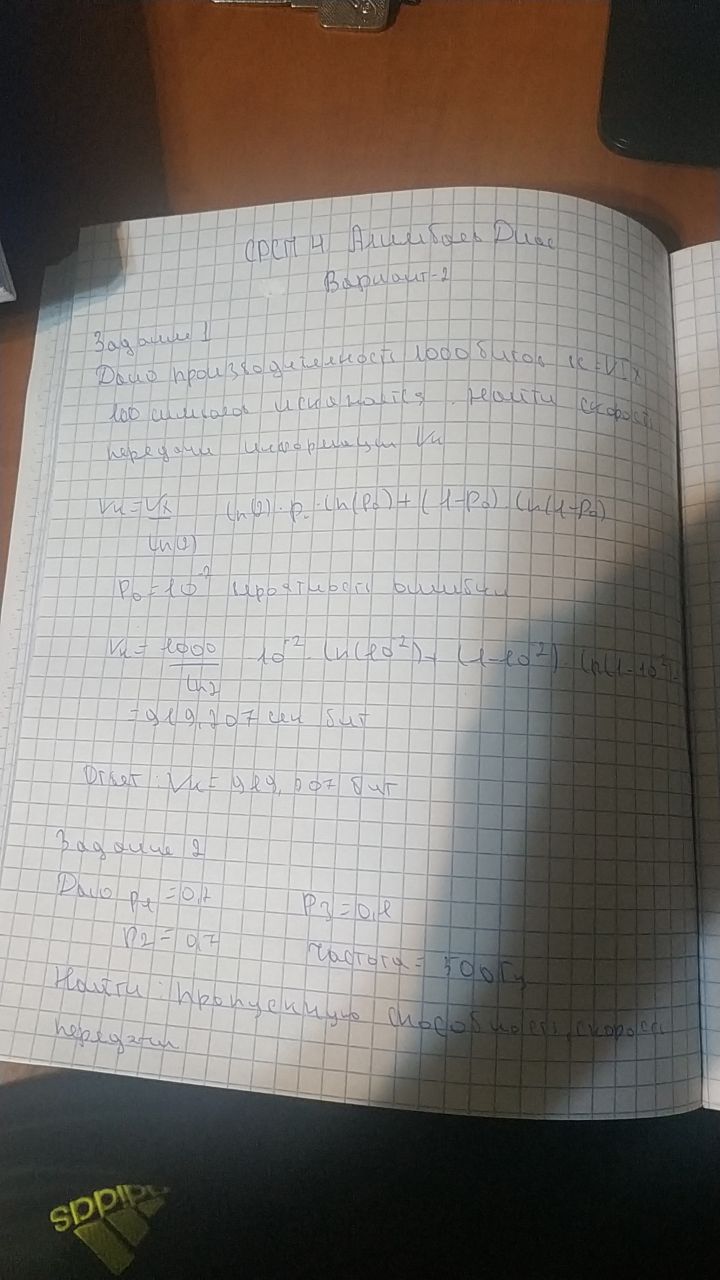 СРСП 4 Алимбаев Диас
Вариант-2
Задание 1
Дано производительность 1000 битов
100 символов искажается. Найти скорость
передачи информации Vи
Vи = Vx / ln(2) ln(2) · p₀ · ln(p₀) + (1-p₀) · ln(1-p₀)
P₀ = 10⁻² ошибки
Vи = 1000 / ln2 10⁻² · ln(10⁻²) + (1-10⁻²) · ln(1-10⁻²) =
= 919,207 бит
Ответ: Vи = 919, бит
Задание 2
Дано p1 = 0, P3 = 0,
P2 = 0,7 Частота = 500 Гц
Найти: пропускную способность, скорость
передачи
adidas